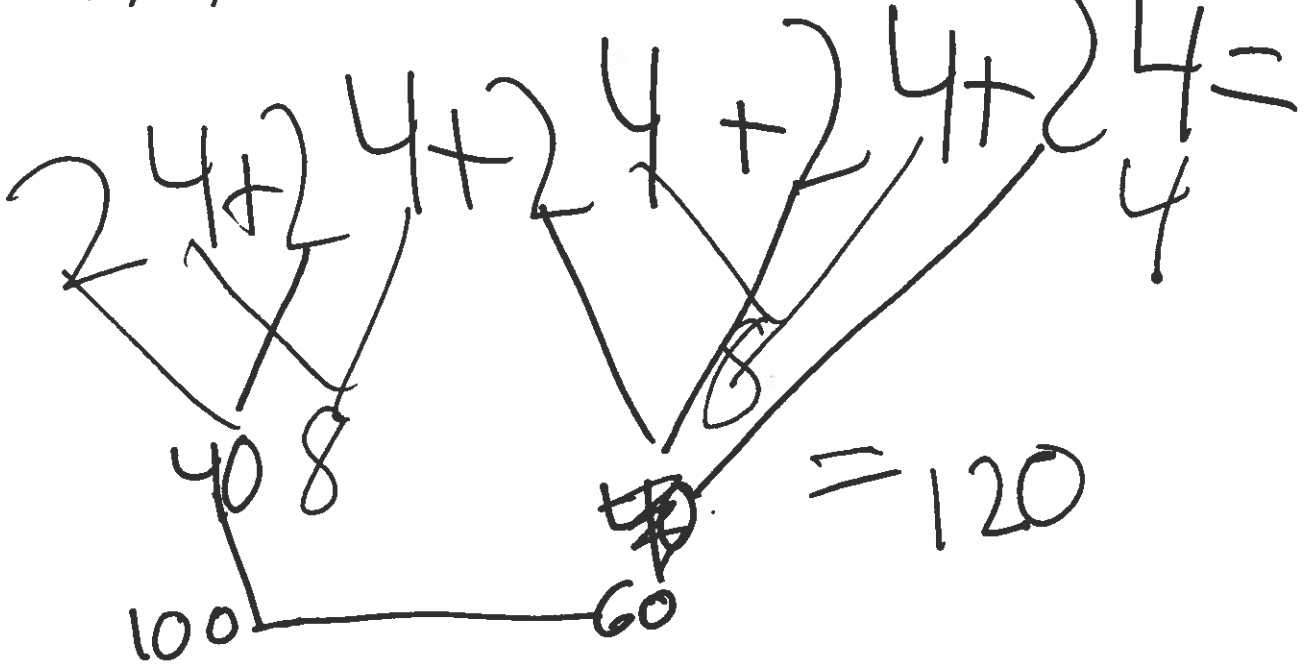 24+24+24+24+24=
4
8
40 8 40 =120
100 60